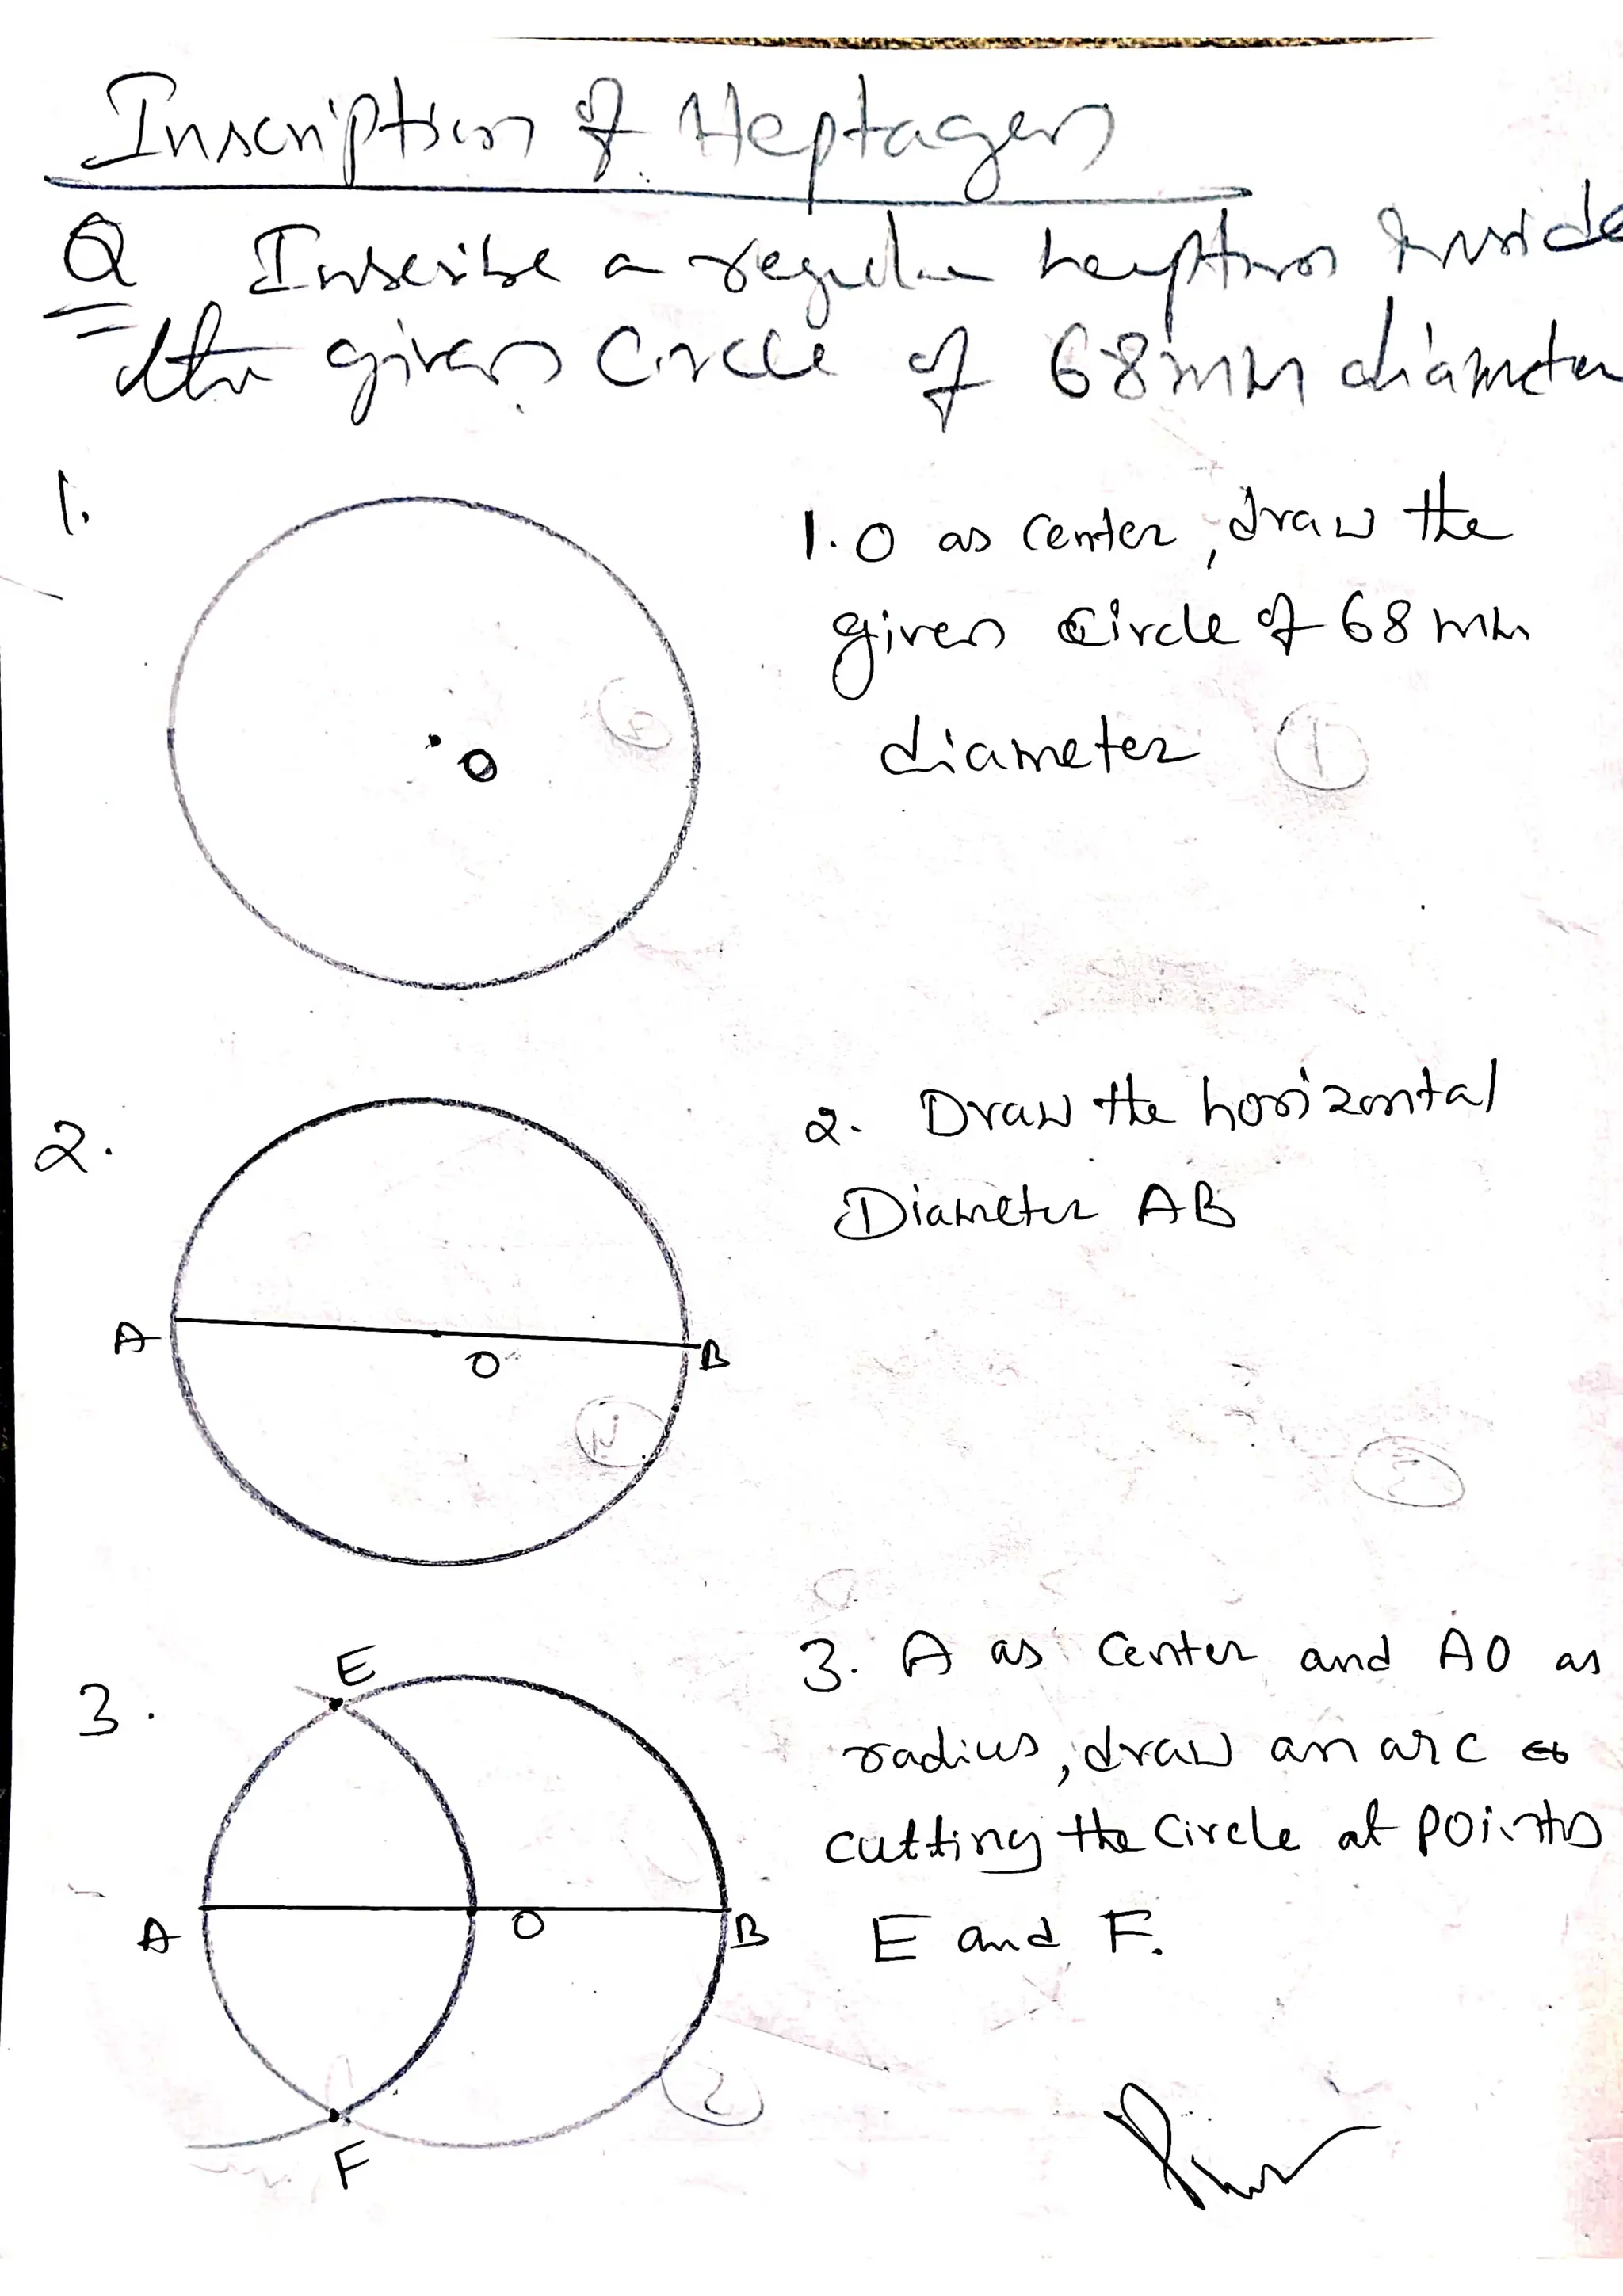 Inscription of Heptagon
Q Inscribe a regular heptagon inside
the given Circle of 68mm diameter
1.
1. O as center, draw the
given circle of 68 mm
diameter
1
O
2.
2. Draw the horizontal
Diameter AB
A
O
B
2
3.
E
3. A as Center and AO as
radius, draw an arc
cutting the Circle at points
E and F.
A
O
B
F